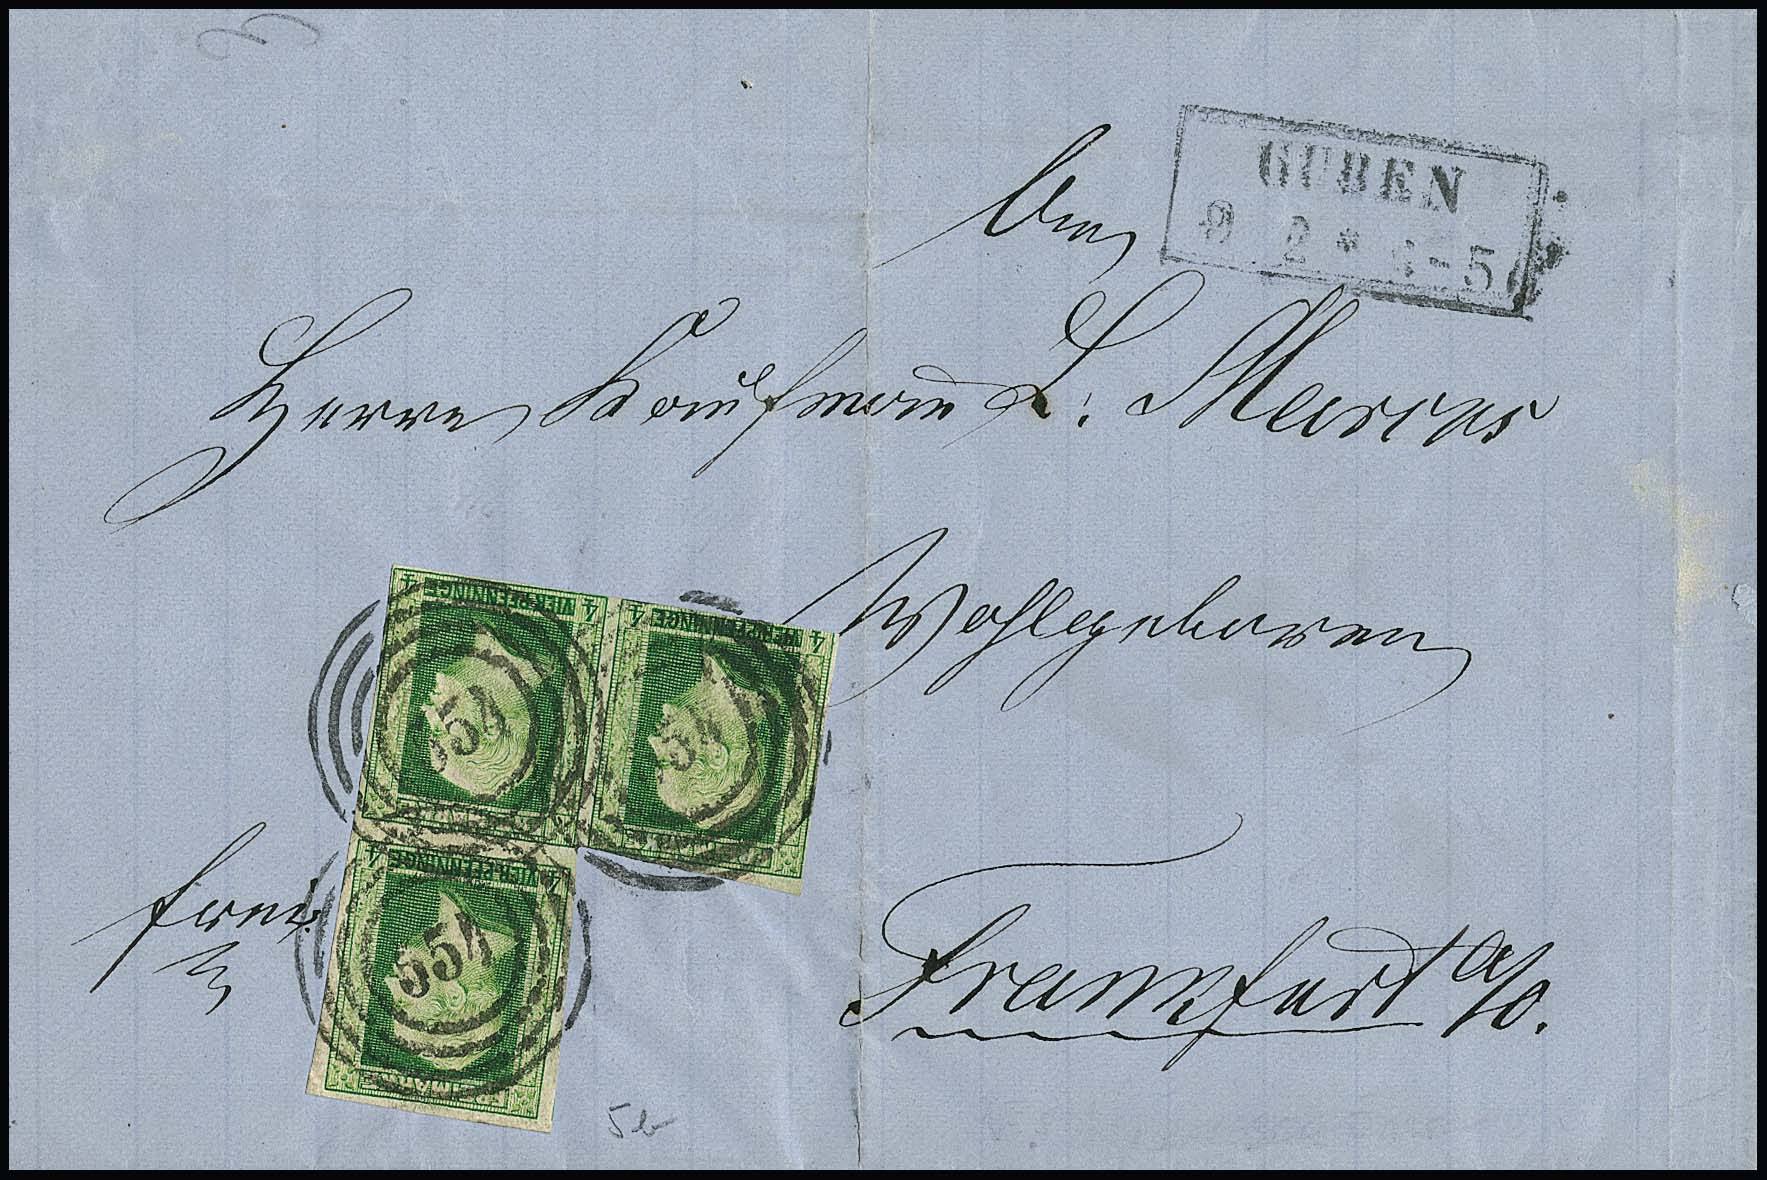 GUBEN
9 2 * 4-5
An
Herrn Kaufmann L. Marcus
Wohlgeboren
VIER PFENNINGE
4 4
VIER PFENNINGE
4 4
554
54
VIER PFENNINGE
4 4
554
frei
Frankfurt a/O.
5b